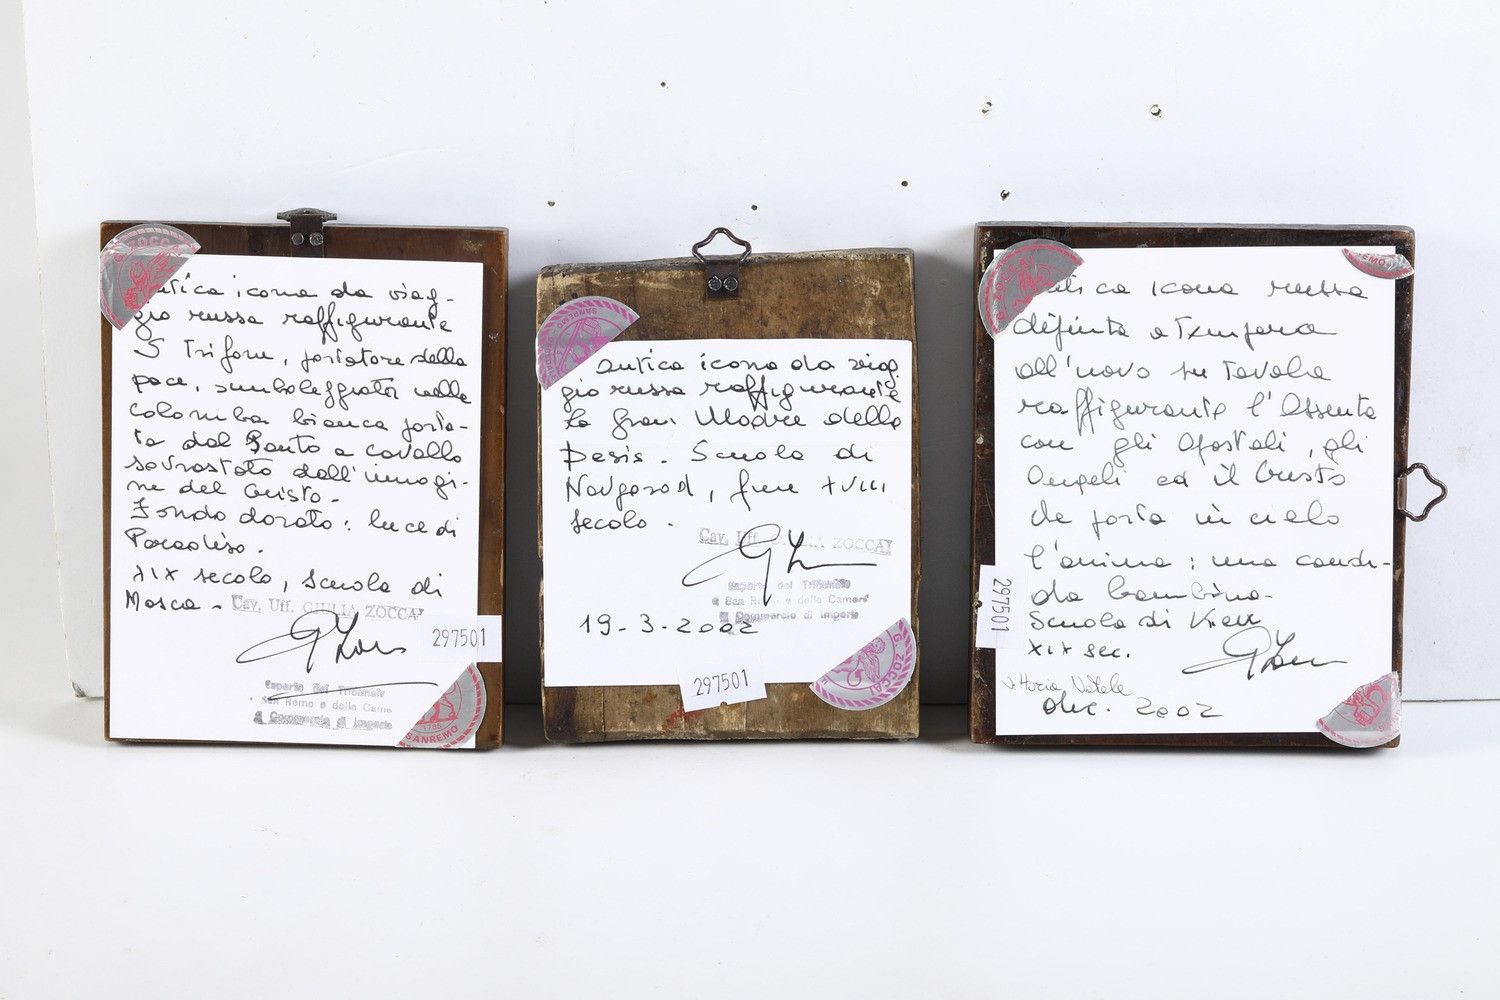 G. ZOCCA
antica icona da viag-
gio russa raffigurante
S Trifone, portatore della
pace, simboleggiata nella
colomba bianca porta-
ta dal Santo a cavallo
sovrastato dall'immagi-
ne del Cristo-
Fondo dorato: luce di
Paradiso.
XIX secolo, Scuola di
Mosca-
Cav. Uff. GIULIA ZOCCAI
297501
Esperto del Tribunale
San Remo e della Came
di Commercio di Imperia
SANREMO
SANREMO
antica icona da viag
gio russa raffigurante
la Gran Madre della
Desis. Scuola di
Novgorod, fine XVIII
secolo.
Cav. Uff. GIULIA ZOCCAI
Esperto del Tribunale
di San Remo e della Camera
di Commercio di Imperia
19-3-2002
G. ZOCCA
297501
G. ZOC
EMO
antica icona russa
dipinta a tempera
all'uovo su tavola
raffigurante l'Assunta
con gli Apostoli, gli
Angeli ed il Cristo
che porta in cielo
l'anima: una candi-
da bambina-
Scuola di Kiev
XIX sec.
Vittoria Natale
dic. 2002
297501